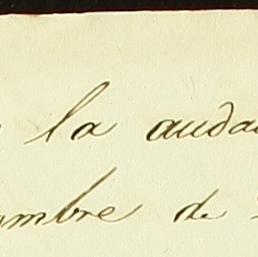 la auda
mbre de